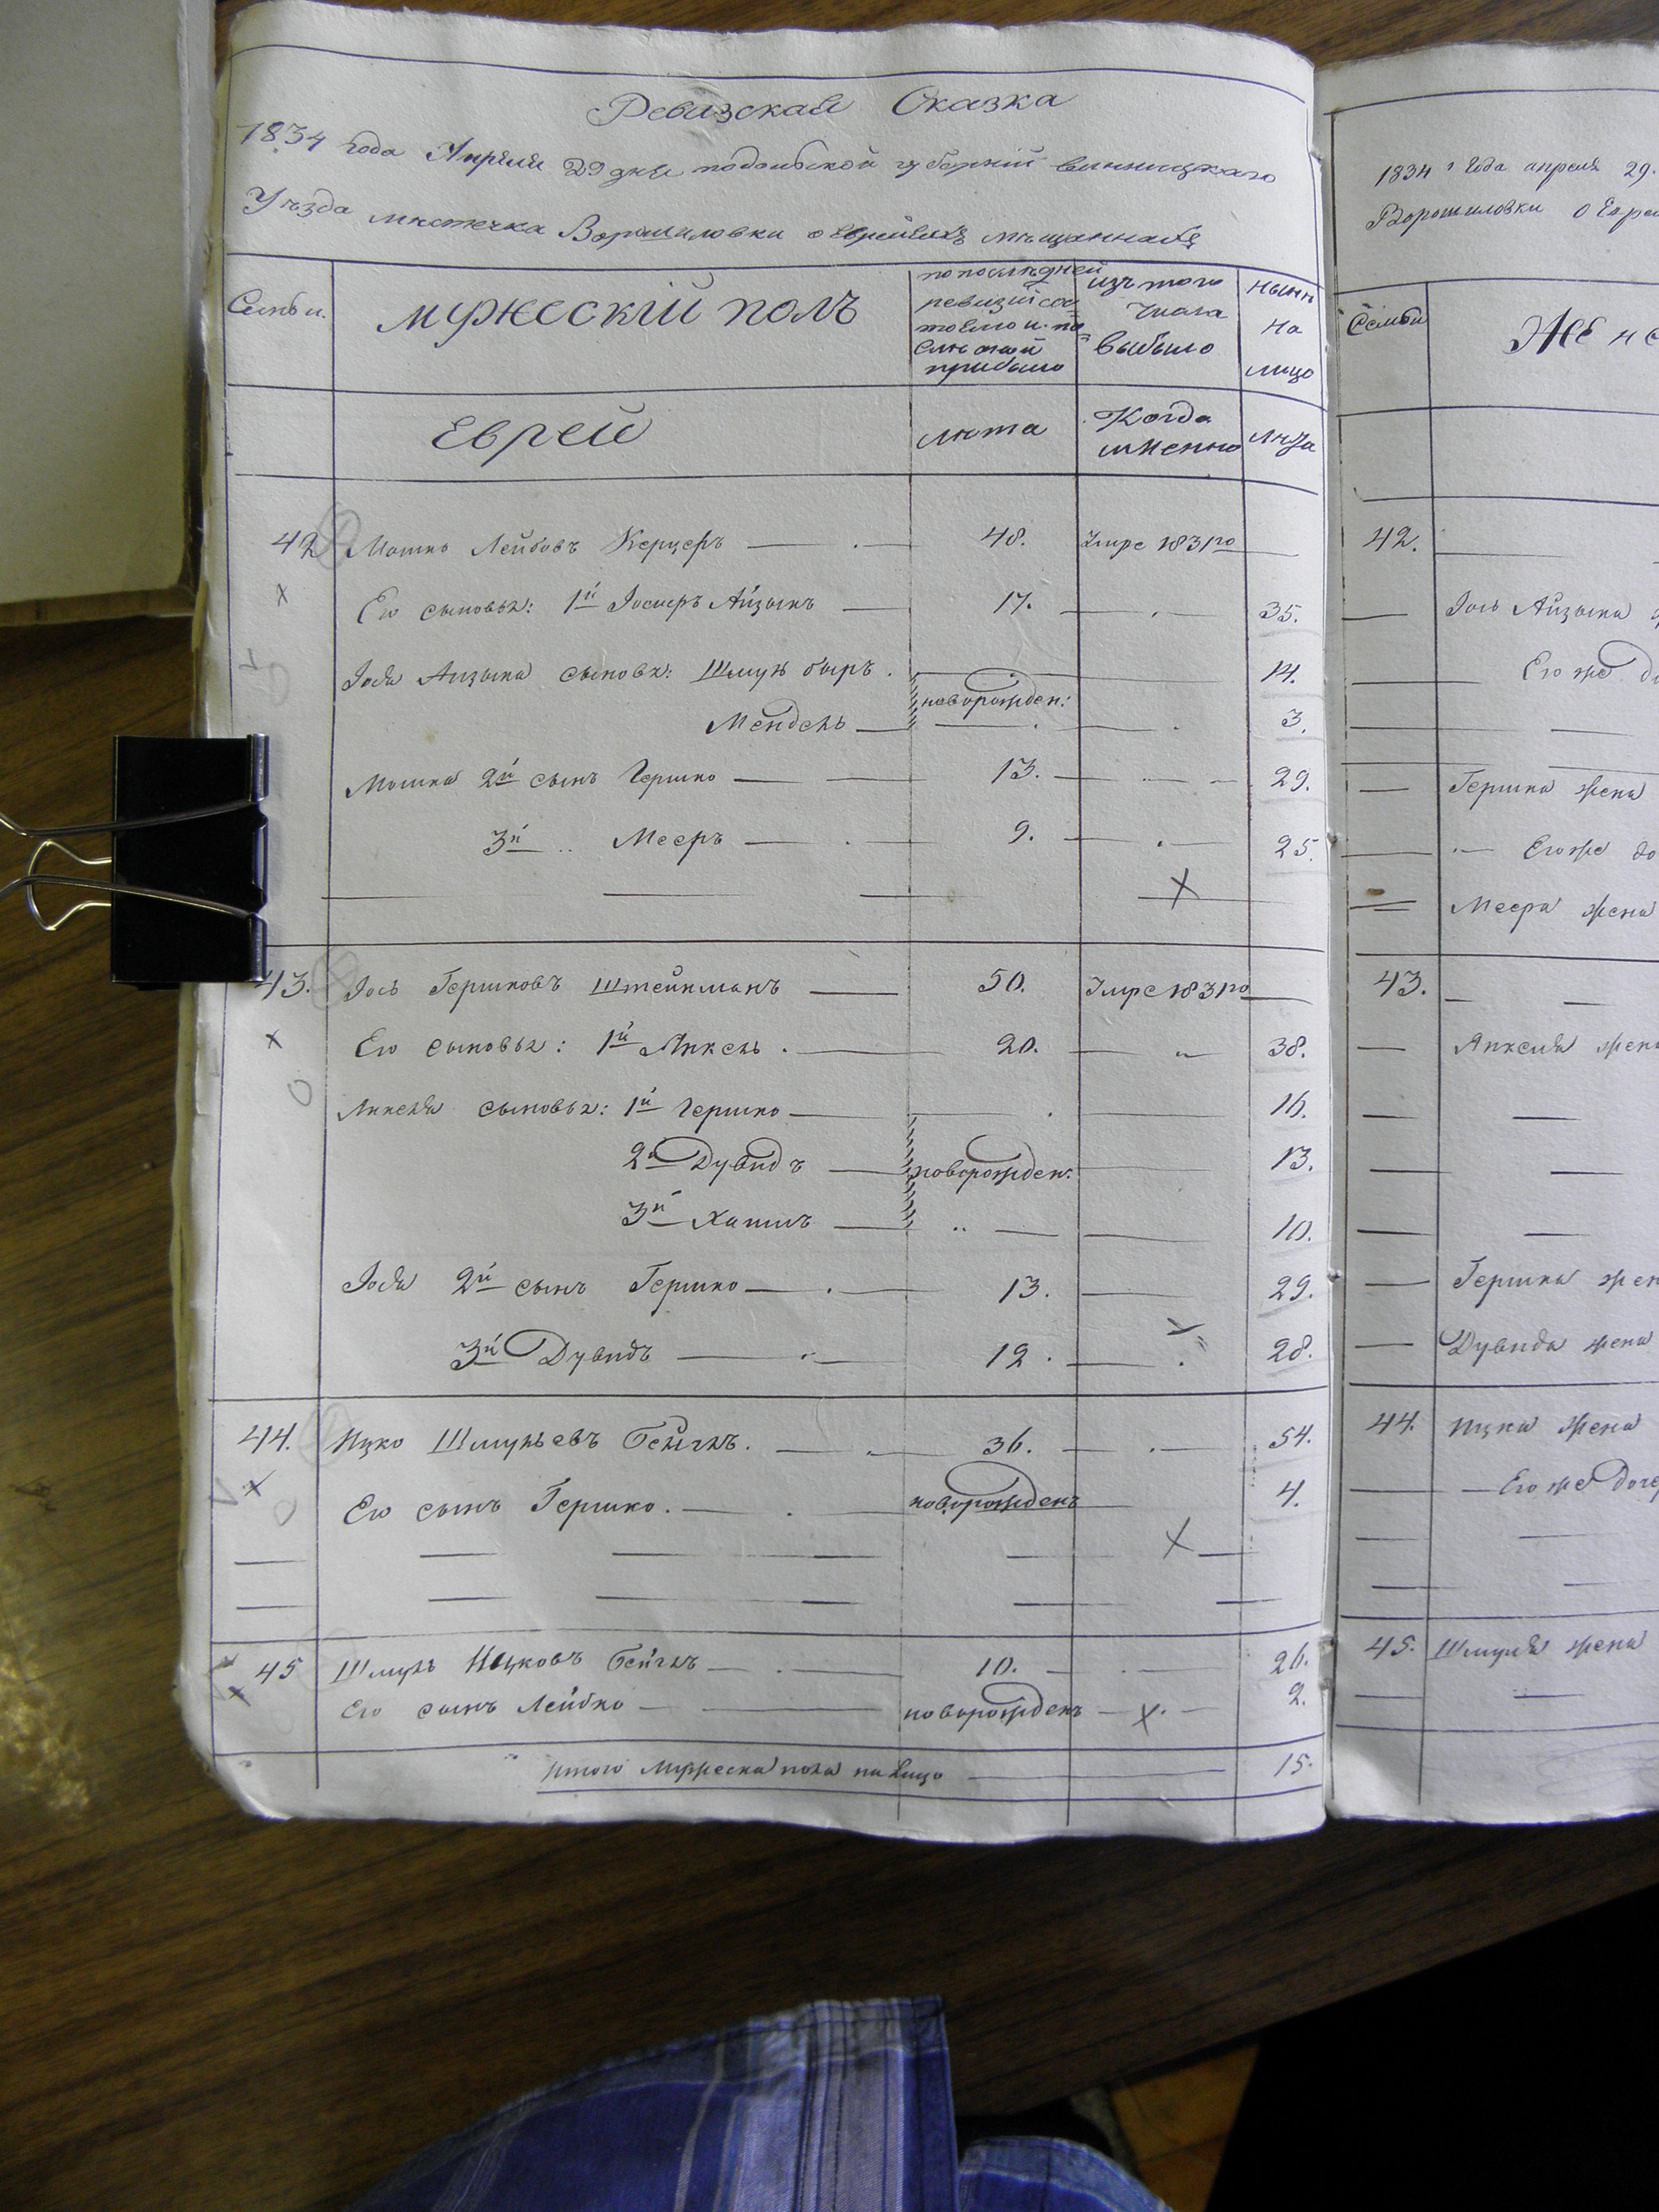 Ревизская Сказка
1834 года Апреля 29 дня подольской губерній винницкаго
Уѣзда мѣстечка Ворошиловки о евреяхъ мѣщанахъ
Семьи.
мужескій полъ
по послѣдней ревизій состояло и послѣ оной прибыло
изъ того числа выбыло
нынѣ на лицо
Еврей
лѣта
Когда именно
лѣта
42 Мошко Лейбовъ Керцеръ 48. Умре 1831го
Его сыновья: 1й Іосперъ Айзыкъ 17. 35.
Іося Айзыка сыновья: Шмуль быръ. 14.
новорожден:
Мендель 3.
Мошка 2й сынъ Гершко 13. 29.
3й .. Мееръ 9. 25.
43. Іось Гершковъ Штейнманъ 50. Умре 1831го
Его сыновья: 1й Янкель. 20. 38.
Янкеля сыновья: 1й Гершко 16.
2й Дувидъ новорожден: 13.
3й Хаимъ 10.
Іося 2й сынъ Гершко 13. 29.
3й Дувидъ 12. 28.
44. Ицко Шмульевъ 36. 54.
Его сынъ Гершко. новорожденъ 4.
45 Шмуль Ицковъ 10. 26.
Его сынъ Лейбко новорожденъ 2.
итого мужеска пола на лицо 15.
1834 года апреля 29.
Ворошиловки о Евре
Семьи
Жен
42.
Іось Айзыка
Его же
Гершка жена
Его же до
Меера жена
43.
Янкеля жена
Гершка жен
Дувида жена
44. Ицка жена
Его же доче
45. Шмуля жена